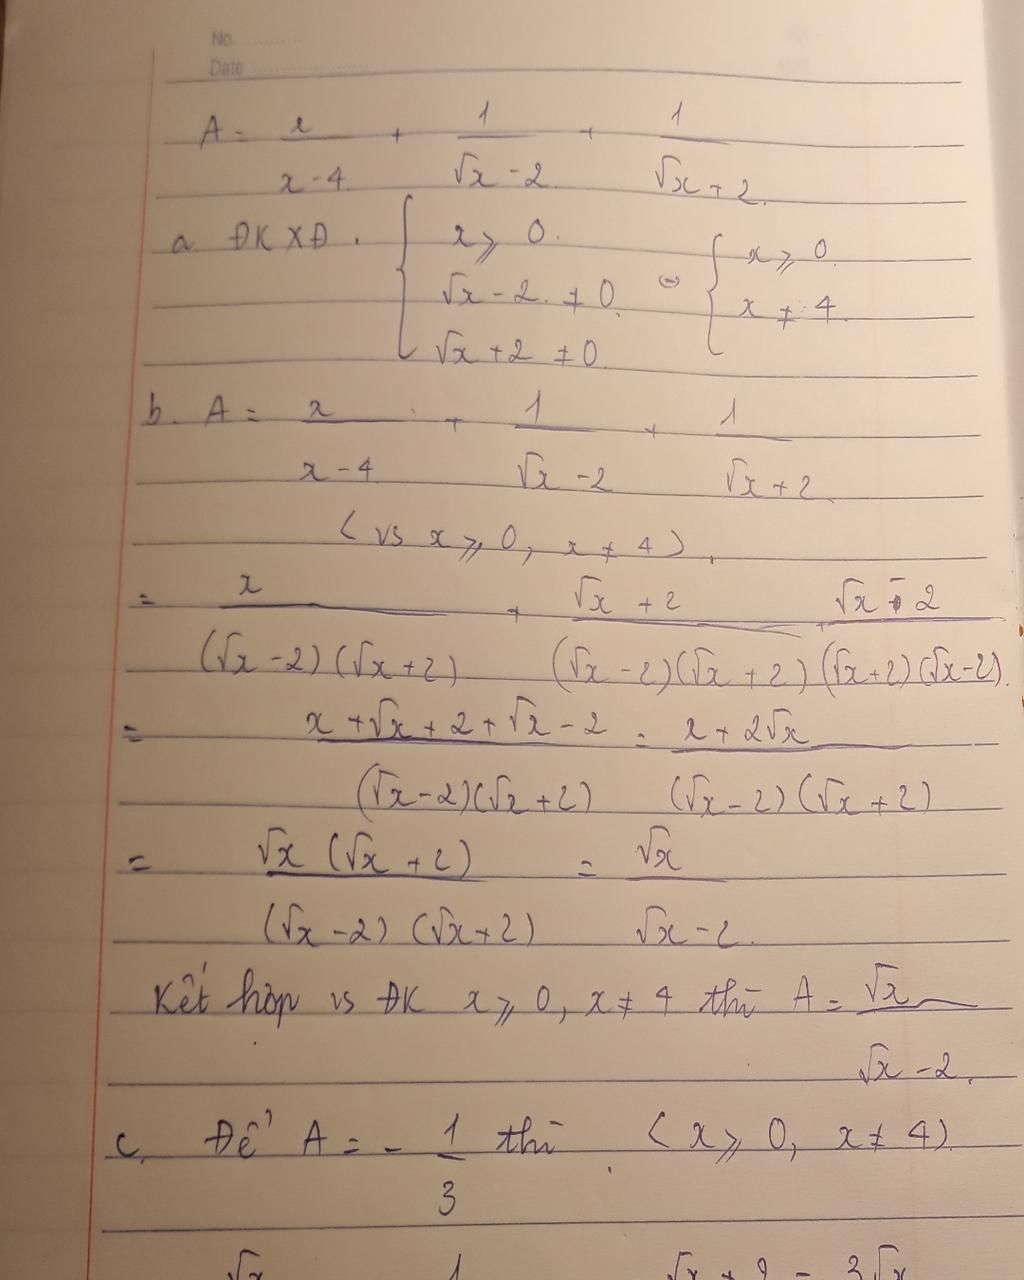 No. ............
Date .....................
A = x/(x-4) + 1/(√x -2) + 1/(√x +2).
a. ĐKXĐ. { x ⩾ 0. √x -2. ≠ 0. √x +2 ≠ 0. ⇔ { x ⩾ 0. x ≠ 4.
b. A = x/(x-4) + 1/(√x -2) + 1/(√x +2).
( vs x ⩾ 0, x ≠ 4 ).
= x/((√x -2)(√x +2)) + (√x +2)/((√x -2)(√x +2)) + (√x - 2)/((√x+2)(√x-2)).
= (x +√x + 2 + √x - 2)/((√x-2)(√x+2)) = (x + 2√x)/((√x-2)(√x+2))
= (√x (√x +2))/((√x -2)(√x+2)) = √x/(√x -2).
Kết hợp vs ĐK x ⩾ 0, x ≠ 4 thì A = √x/(√x -2).
c. Để A = - 1/3 thì ( x ⩾ 0, x ≠ 4).